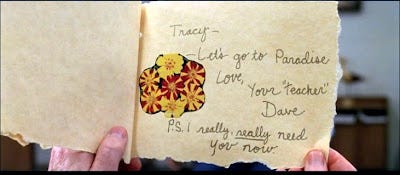 Tracy-
-Let's go to Paradise
Love,
Your "Teacher"
Dave
P.S. I really, really need
you now.